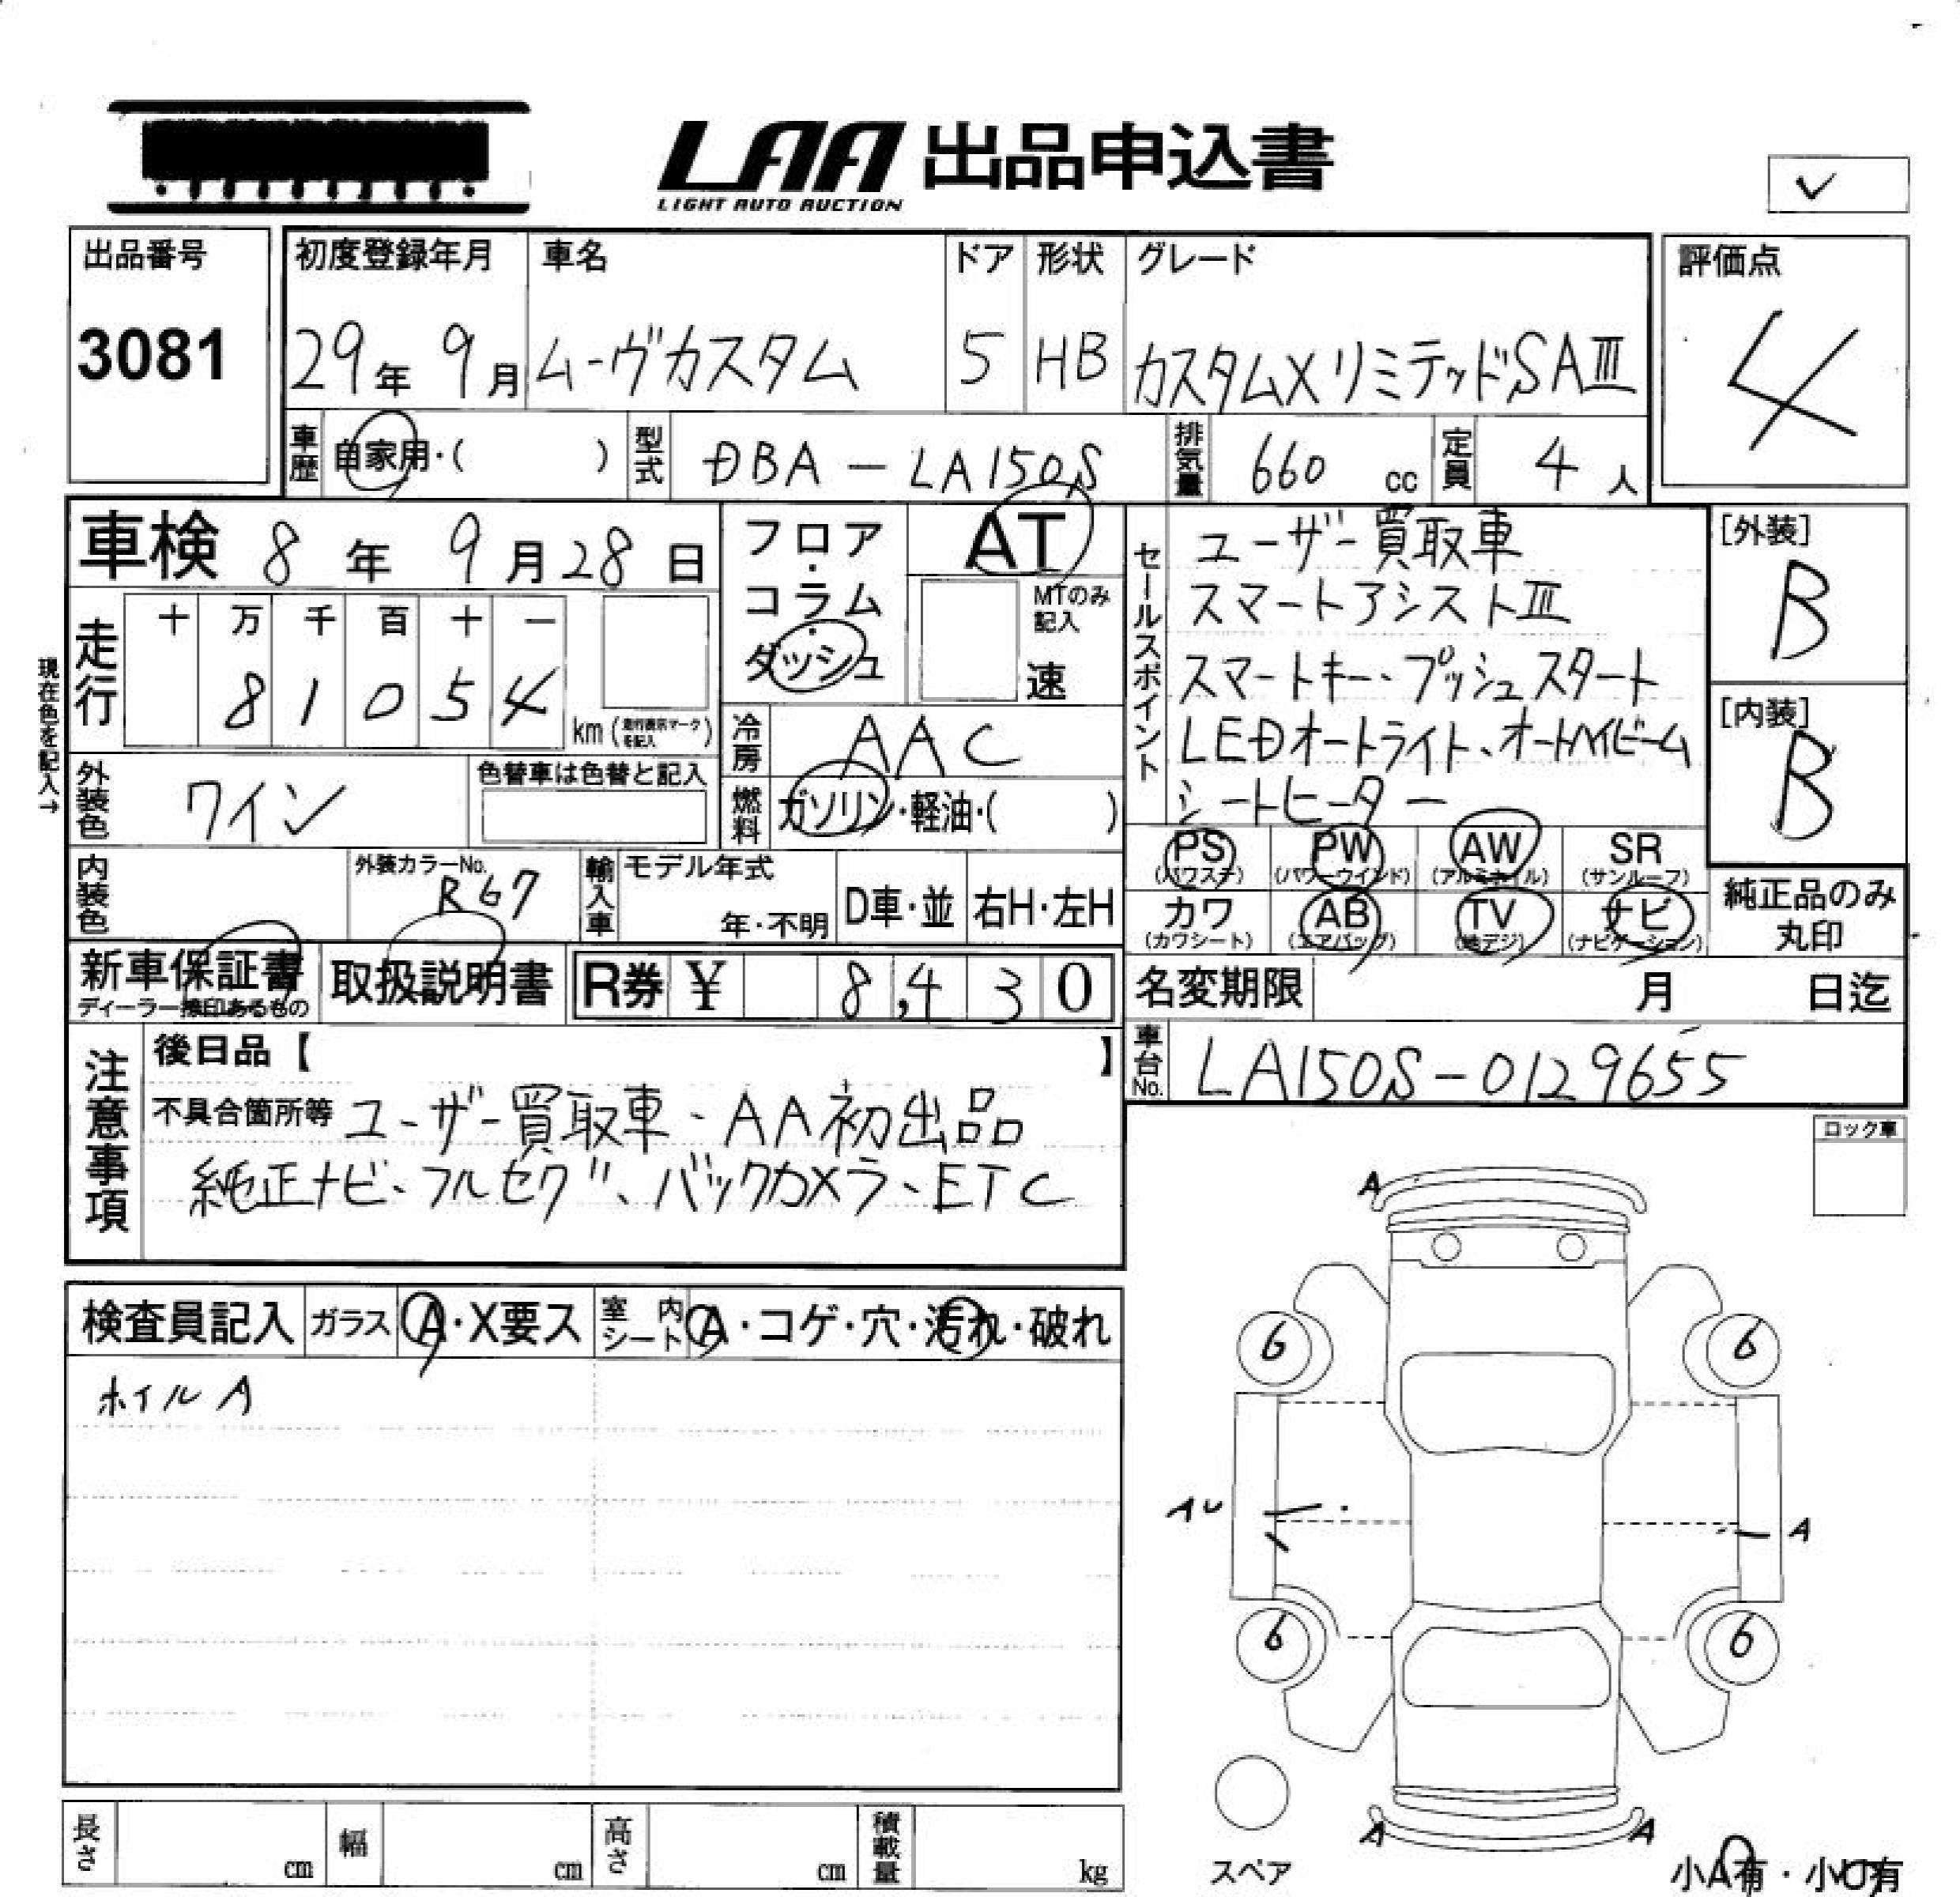 LAA 出品申込書
LIGHT AUTO AUCTION
✓
出品番号
3081
初度登録年月 車名 ドア 形状 グレード
29年 9月 ムーヴカスタム 5 HB カスタムXリミテッドSAⅢ
評価点
4
車歴 自家用・( ) 型式 DBA-LA150S 排気量 660 cc 定員 4 人
車検 8年 9月28日
フロア・コラム・ダッシュ
AT
MTのみ記入
速
走行 十 万 千 百 十 一
8 1 0 5 4
km(走行表示マークを記入)
現在色を記入→
冷房 AAC
燃料 ガソリン・軽油・( )
外装色 ワイン
色替車は色替と記入
内装色
外装カラーNo. R67
輸入車 モデル年式
年・不明 D車・並 右H・左H
セールスポイント
ユーザー買取車
スマートアシストⅢ
スマートキー、プッシュスタート
LEDオートライト、オートハイビーム
シートヒーター
[外装]
B
[内装]
B
PS PW AW SR
(パワステ) (パワーウインド) (アルミホイル) (サンルーフ)
カワ AB TV ナビ
(カワシート) (エアバッグ) (地デジ) (ナビゲーション)
純正品のみ
丸印
新車保証書
ディーラー捺印あるもの
取扱説明書
R券 ¥ 8,430
名変期限 月 日迄
車台No. LA150S-0129655
注意事項
後日品【 】
不具合箇所等 ユーザー買取車、AA初出品
純正ナビ、フルセグ、バックカメラ、ETC
ロック車
検査員記入 ガラス A・X要ス 室内シート A・コゲ・穴・汚れ・破れ
ホイルA
A
6 6
AU A
6 6
A A
スペア
小A有・小U有
長さ cm 幅 cm 高さ cm 積載量 kg